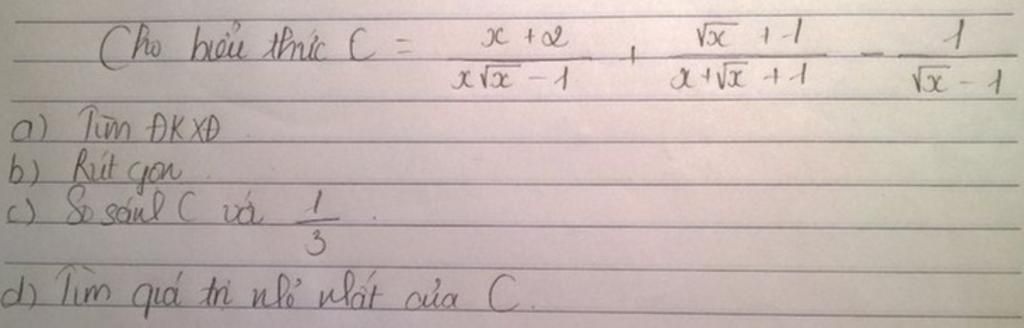 Cho biểu thức C = \frac{x + 2}{x\sqrt{x} - 1} + \frac{\sqrt{x} + 1}{x + \sqrt{x} + 1} - \frac{1}{\sqrt{x} - 1}
a) Tìm ĐKXĐ
b) Rút gọn
c) So sánh C với \frac{1}{3}.
d) Tìm giá trị nhỏ nhất của C.